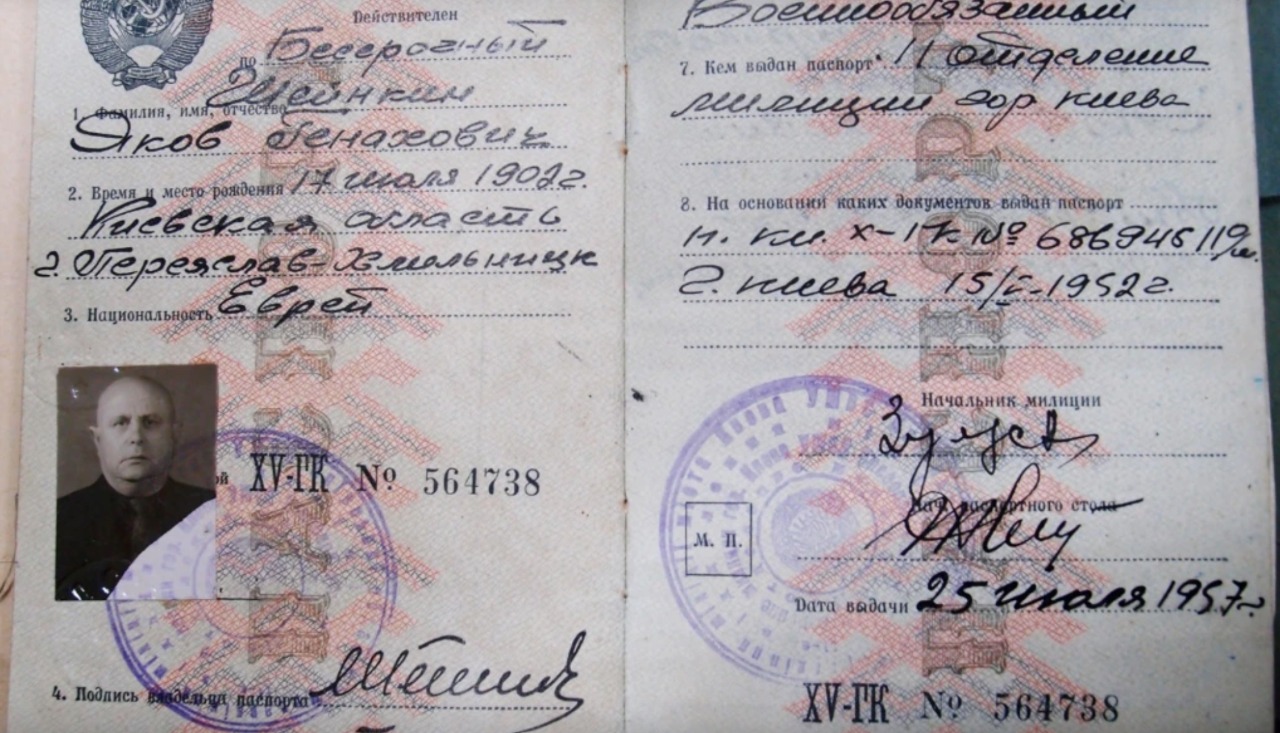 Действителен
по Бессрочный
1. Фамилия, имя, отчество
Яков Генахович
2. Время и место рождения 17 июля 1902 г.
Киевская область
г. Переяслав-Хмельницк
3. Национальность Еврей
XV-ГК № 564738
4. Подпись владельца паспорта
Военнообязанный
7. Кем выдан паспорт 11 отделение
милиции гор Киева
8. На основании каких документов выдан паспорт
п. кн. X-ЛК № 686945 119/м.
г. Киева 15/V-1952 г.
Начальник милиции
Нач. паспортного стола
М. П.
Дата выдачи 25 июля 1957 г.
XV-ГК № 564738